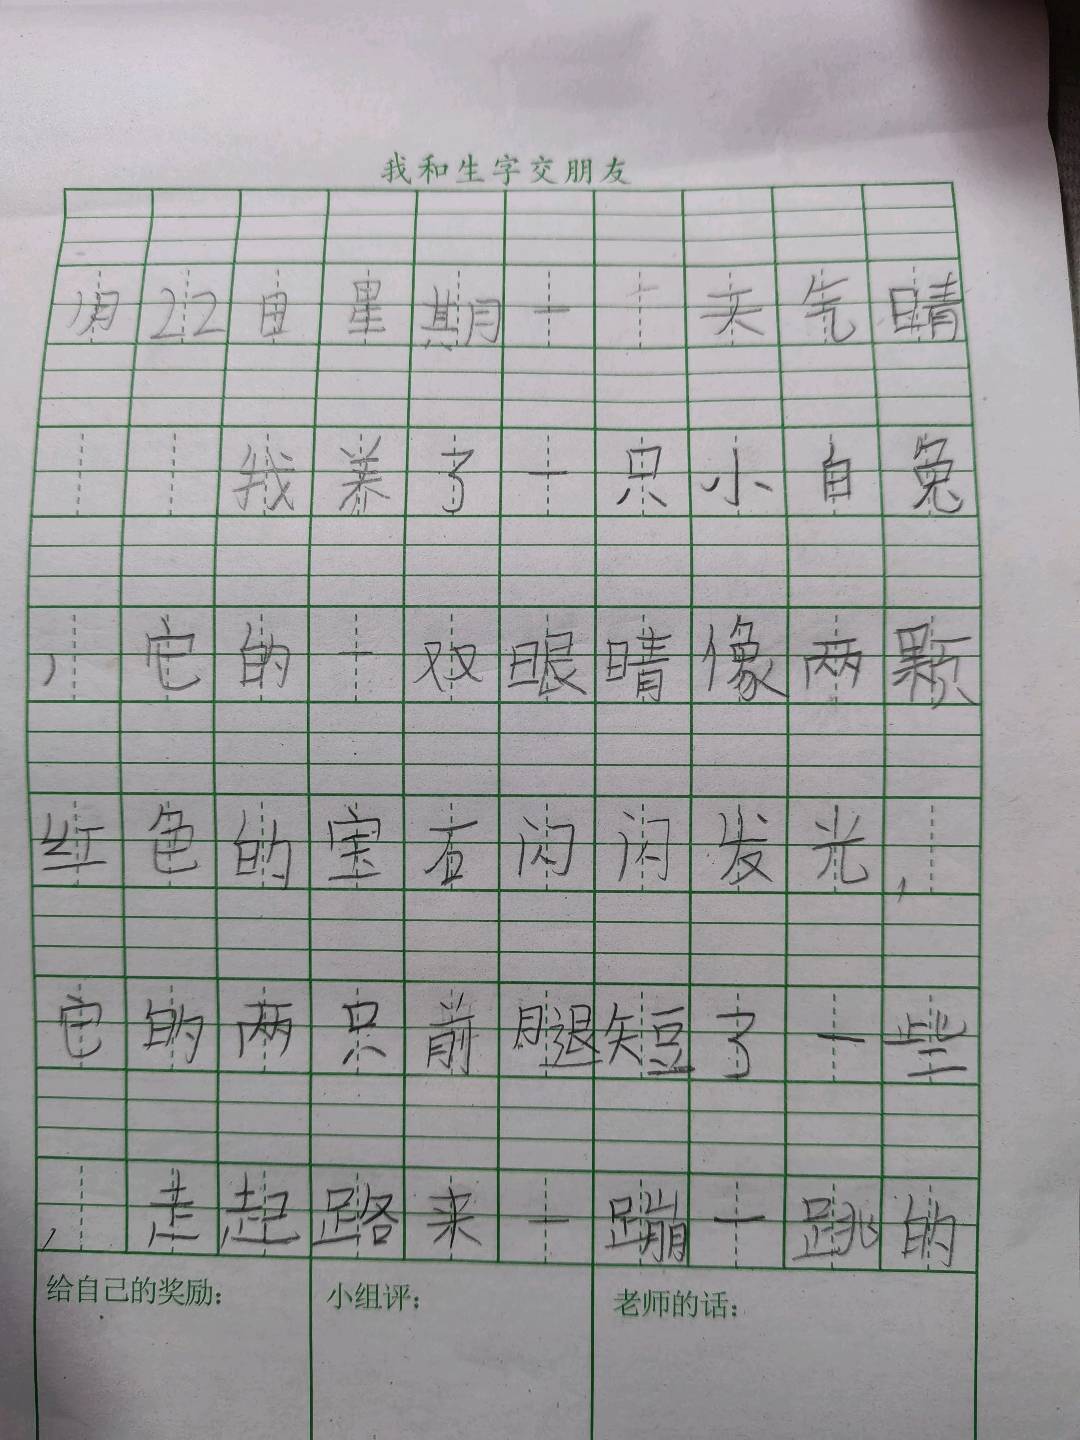 我和生字交朋友
1月22日星期一 天气晴
我养了一只小自兔
，它的一双眼晴像两颗
红色的宝石闪闪发光，
它的两只前腿短了一些
，走起路来一蹦一跳的
给自己的奖励：
小组评；
老师的话：